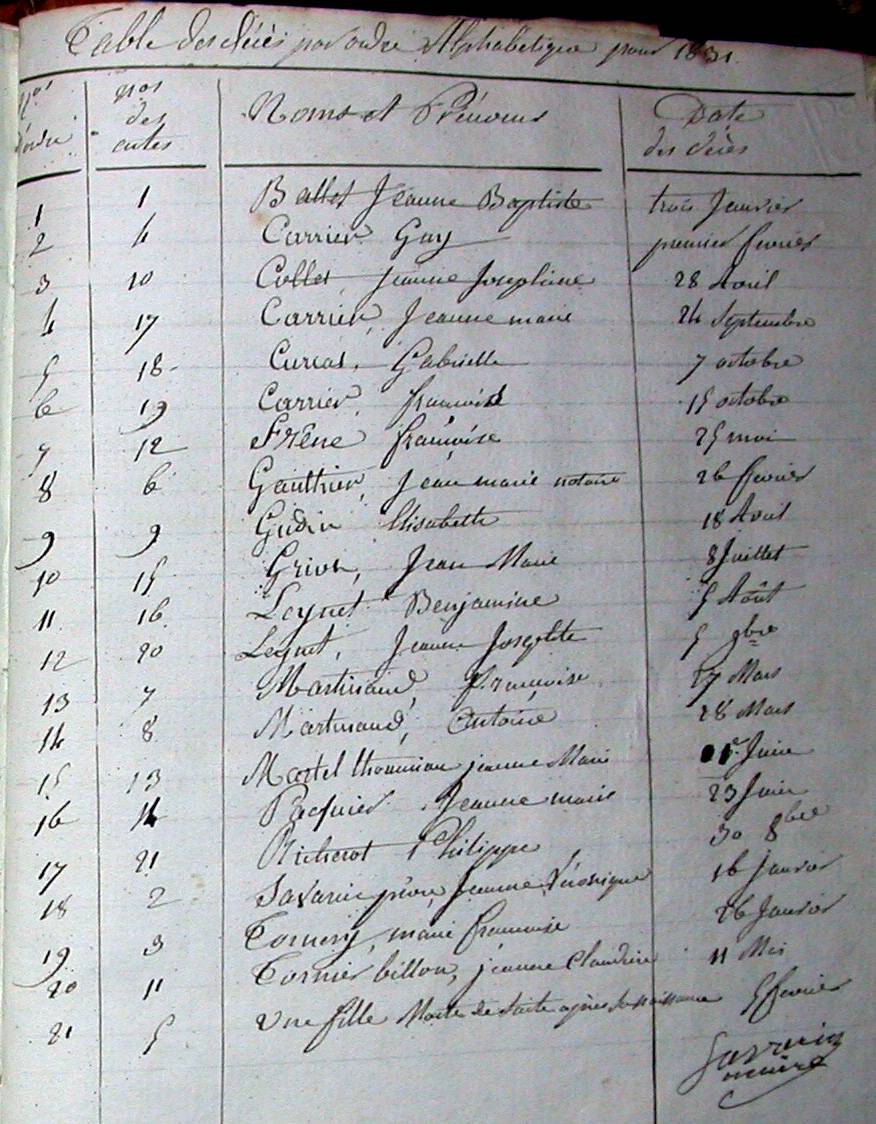 Table des décès par ordre Alphabetique pour 1831.
Nos d'ordre nos des actes Noms et Prénoms Date des décès
1 1 Ballet Jeanne Baptiste trois Janvier
2 4 Carrier Guy premier fevrier
3 10 Collet, jeanne Josephine 28 Avril
4 17 Carrier, Jeanne marie 24 Septembre
5 18 Gabrielle 7 octobre
6 19 Carrier, francoise 15 octobre
7 12 Frêne françoise 25 mai
8 6 Gauthier, Jean marie notaire 26 fevrier
9 9 Gudin Elisabette 18 Avril
10 15 Grivon, Jean Marie 8 Juillet
11 16 Leynet Benjamine 5 Août
12 20 Leynet, Jeanne Josephte 5 9bre
13 7 Martinaud, Francoise 27 Mars
14 8 Martinaud, Antoine 28 Mars
15 13 Martel jeanne Marie 1er Juin
16 14 Pasquier Jeanne marie 23 Juin
17 21 Richerot Philippe 30 8bre
18 2 Savarin Jeanne Véronique 16 janvier
19 3 Tornery, marie francoise 26 Janvier
20 11 Tornier billon, jeanne Claudine 11 Mai
21 5 une fille Morte de suite après sa naissance 5 fevrier
Savarin
maire